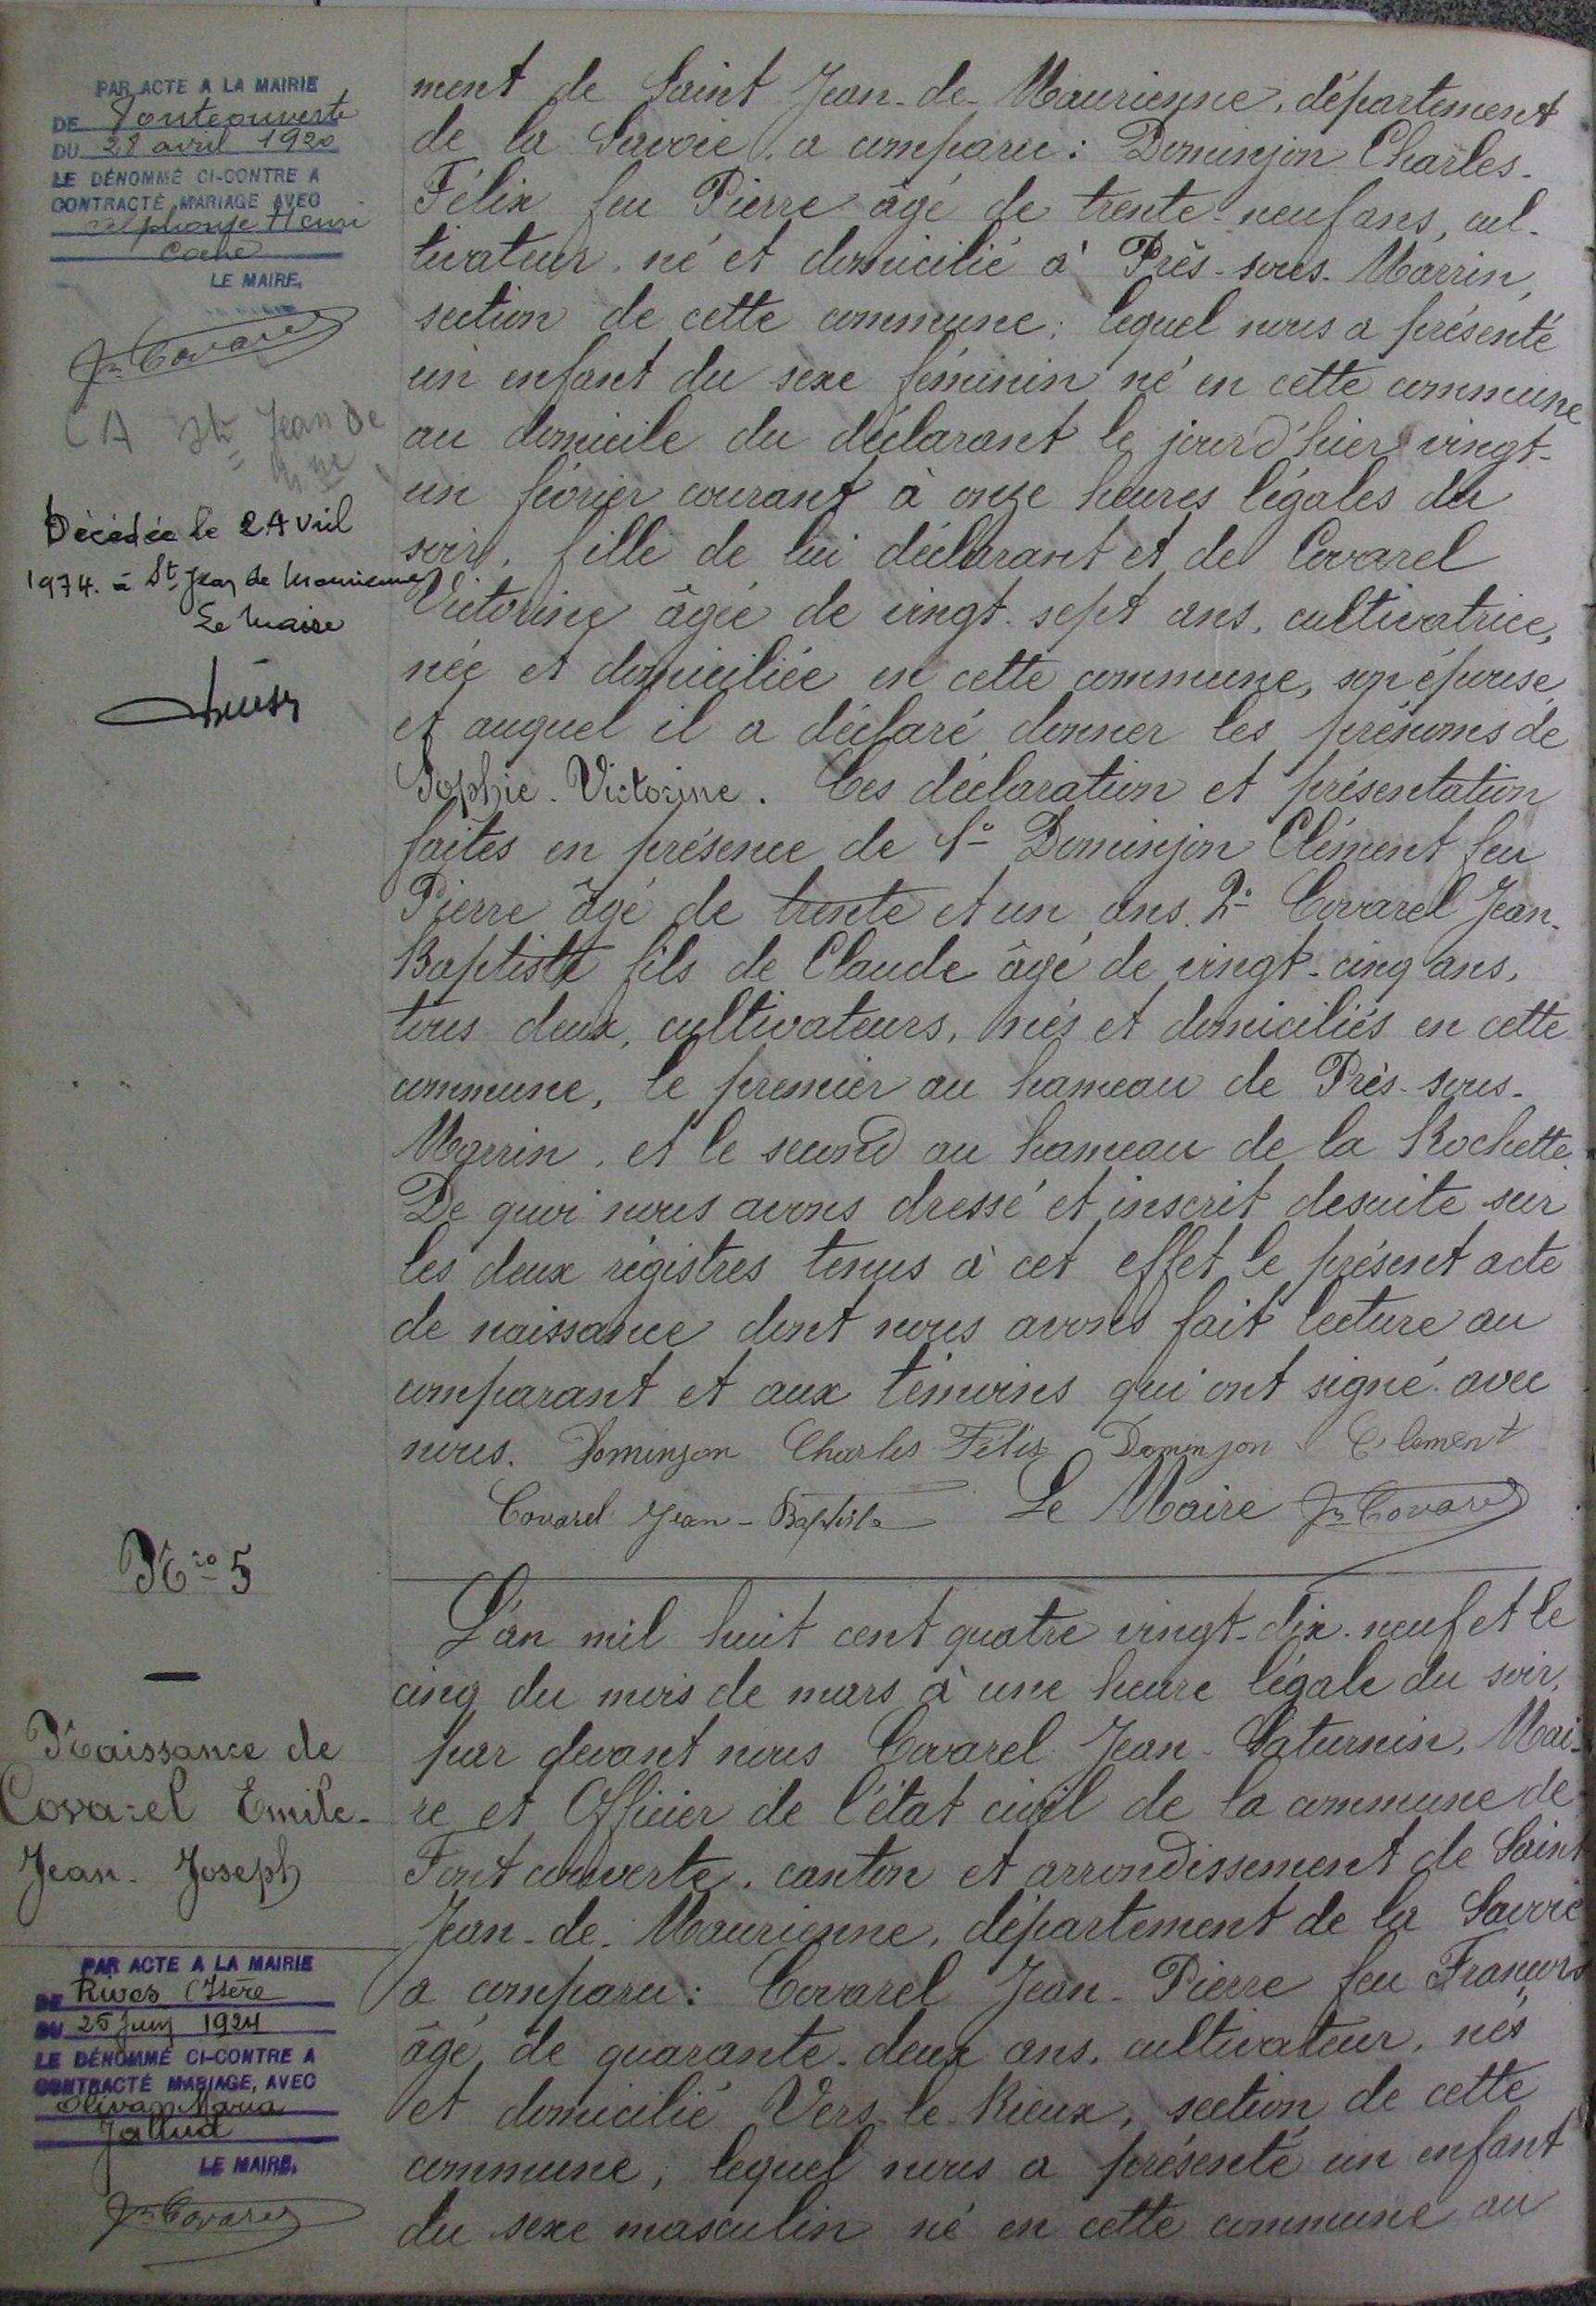 PAR ACTE A LA MAIRIE
DE Fontcouverte
DU 28 avril 1920
LE DÉNOMMÉ CI-CONTRE A
CONTRACTÉ MARIAGE AVEC
Alphonse Henri
Coche
LE MAIRE,
Jn Covarel
St Jean de
Décédée le 2 Avril
1974. à St Jean de Maurienne
Le Maire
ment de Saint Jean-de-Maurienne, département
de la Savoie, a comparu: Dominjon Charles-
Félix feu Pierre âgé de trente-neuf ans, cul-
tivateur, né et domicilié à Près-sous-Marrin,
section de cette commune; lequel nous a présenté
un enfant du sexe féminin né en cette commune
au domicile du déclarant le jour d'hier vingt-
un février courant à onze heures légales du
soir, fille de lui déclarant et de Covarel
Victorine âgée de vingt-sept ans, cultivatrice,
née et domiciliée en cette commune, son épouse,
et auquel il a déclaré donner les prénoms de
Sophie-Victorine. Ces déclaration et présentation
faites en présence de 1° Dominjon Clément feu
Pierre âgé de trente et un ans. 2° Covarel Jean-
Baptiste fils de Claude âgé de vingt-cinq ans,
tous deux, cultivateurs, nés et domiciliés en cette
commune, le premier au hameau de Près-sous-
Marrin, et le second au hameau de la Rochette.
De quoi nous avons dressé et inscrit desuite sur
les deux régistres tenus à cet effet le présent acte
de naissance dont nous avons fait lecture au
comparant et aux témoins qui ont signé avec
nous. Dominjon Charles Félix Dominjon Clement
Covarel Jean-Baptiste Le Maire Jn Covarel
Nro 5
Naissance de
Covarel Emile-
Jean-Joseph
PAR ACTE A LA MAIRIE
DE Rives (Isère
DU 25 Juin 1924
LE DÉNOMMÉ CI-CONTRE A
CONTRACTÉ MARIAGE, AVEC
Maria
Jallud
LE MAIRE,
Jn Covarel
L'an mil huit cent quatre vingt-dix-neuf et le
cinq du mois de mars à une heure légale du soir,
par devant nous Covarel Jean-Saturnin, Mai-
re et Officier de l'état civil de la commune de
Fontcouverte, canton et arrondissement de Saint
Jean-de-Maurienne, département de la Savoie
a comparu: Covarel Jean-Pierre feu François
âgé de quarante-deux ans, cultivateur, nés
et domicilié Vers-le-Rieux, section de cette
commune, lequel nous a présenté un enfant
du sexe masculin né en cette commune au